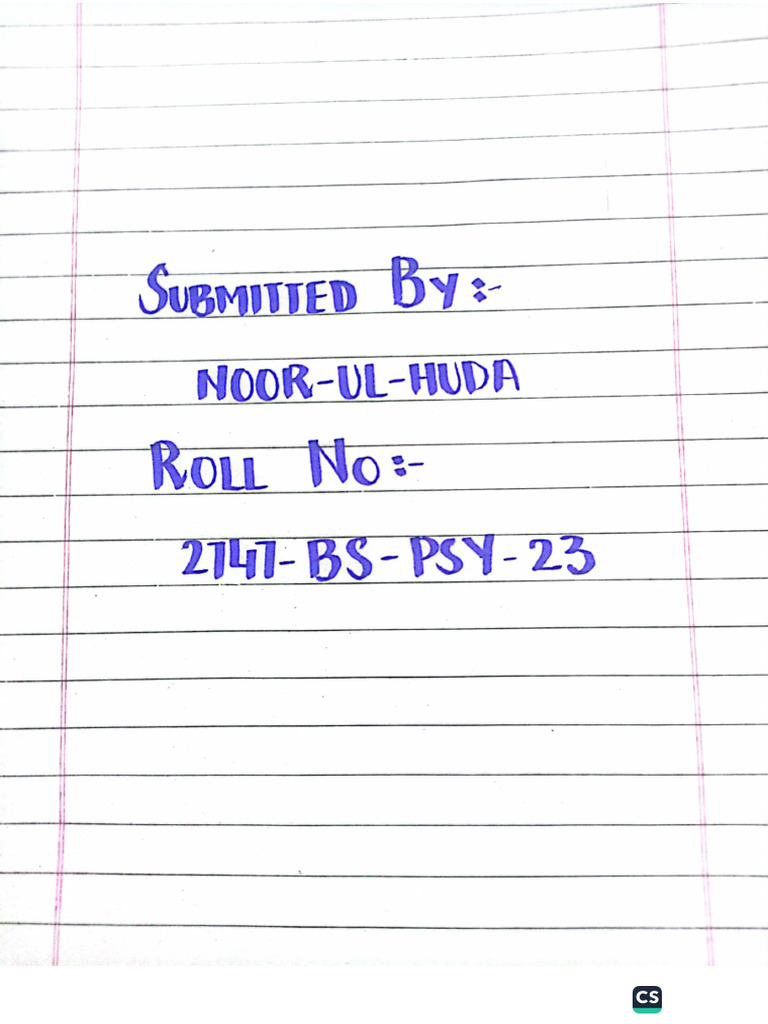 SUBMITTED BY:-
NOOR-UL-HUDA
ROLL NO:-
2747-BS-PSY-23
CS